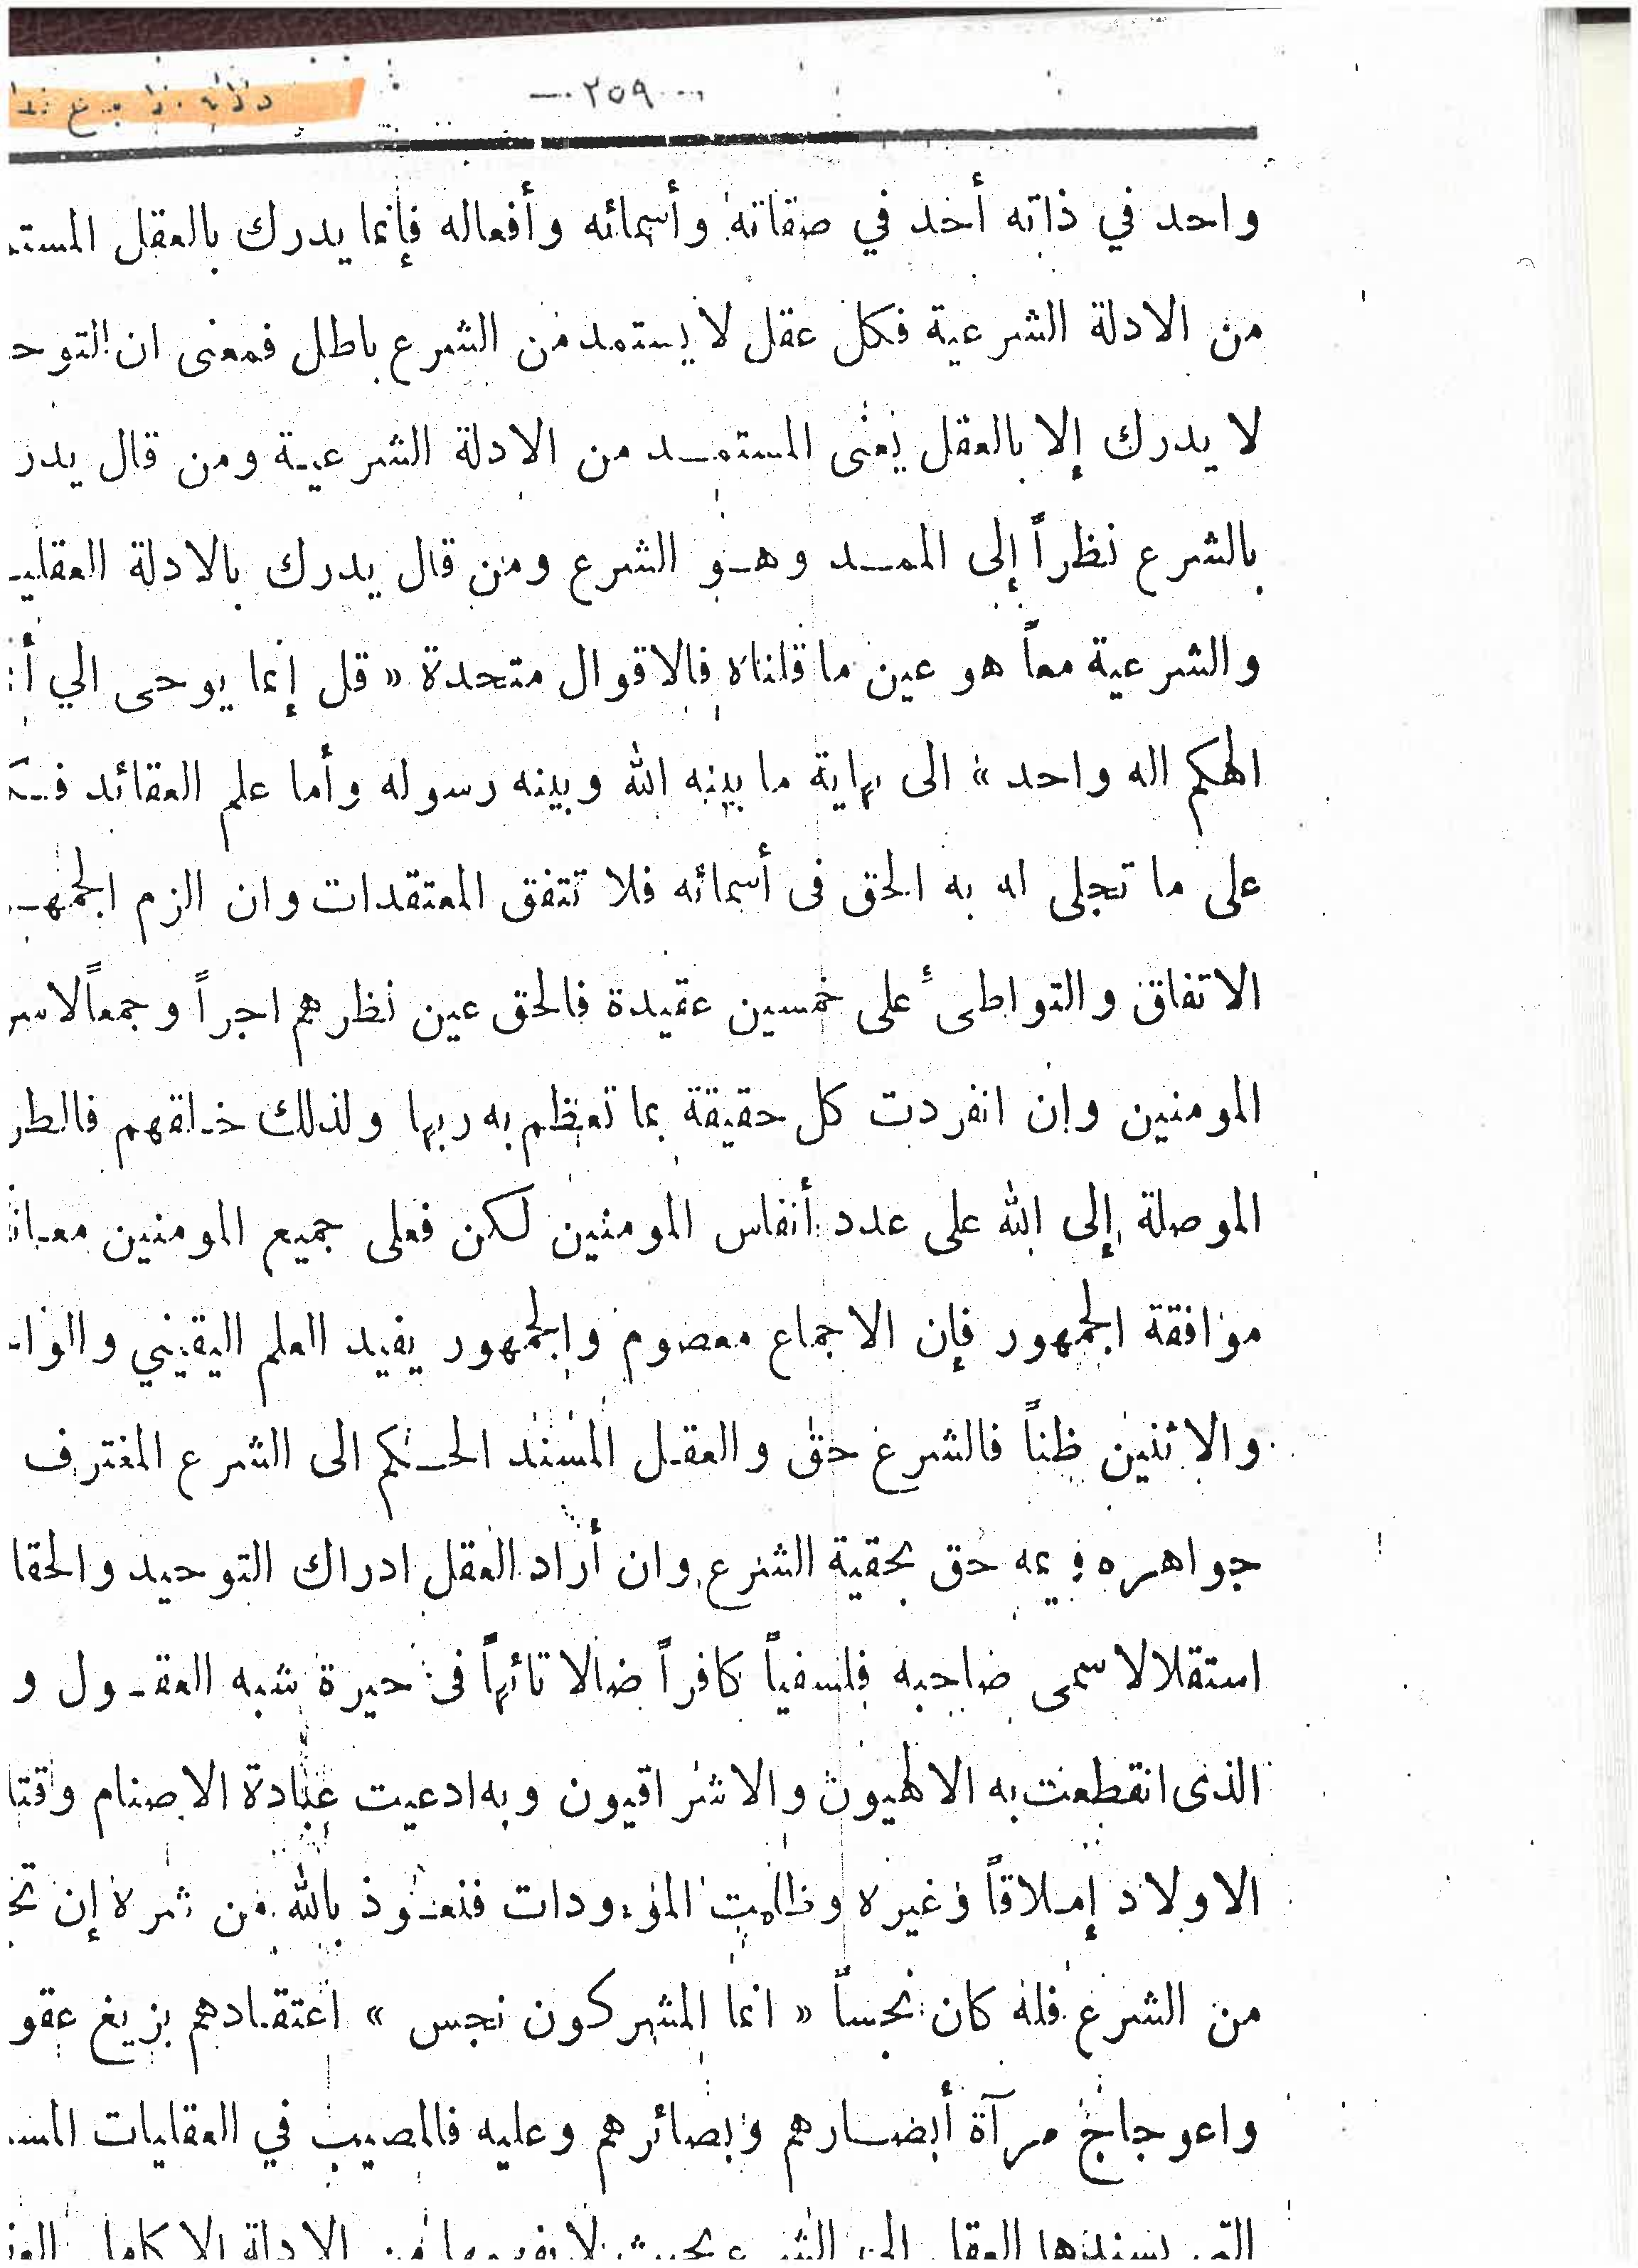 ٢٥٩
واحد في ذاته أحد في صفاته وأسمائه وأفعاله فإنما يدرك بالعقل المستم
من الادلة الشرعية فكل عقل لا يستمد من الشرع باطل فمعنى ان التوح
لا يدرك إلا بالعقل يعنى المستمـد من الادلة الشرعيـة ومن قال يدر
بالشرع نظراً إلى الممـد وهـو الشرع ومن قال يدرك بالادلة العقليـ
والشرعية معاً هو عين ما قلناه فالاقوال متحدة « قل إنما يوحى الي أ
الهكم اله واحد » الى نهاية ما بينه الله وبينه رسوله وأما علم العقائد فـكـ
على ما تجلى له به الحق فى أسمائه فلا تتفق المعتقدات وان الزم الجمهـ
الاتفاق والتواطىء على خمسين عقيدة فالحق عين نظرهم اجراً وجمعاً لاسر
المومنين وإن انفردت كل حقيقة بما تعظم به ربها ولذلك خـلقهم فالطر
الموصلة إلى الله على عدد أنفاس المومنين لكن فعلى جميع المومنين معـا
موافقة الجمهور فإن الاجماع معصوم والجمهور يفيد العلم اليقيني والوا
والاثنين ظناً فالشرع حق والعقـل المسند الحـكم الى الشرع المغترف
جواهره فيمه حق بحقية الشرع وان أراد العقل ادراك التوحيد والحقا
استقلالا سمى صاحبه فلسفياً كافراً ضالا تائهاً فى حيرة شبه العقـول و
الذى انقطعت به الالهيون والاشراقيون وبه ادعيت عبادة الاصنام وقتا
الاولاد إمـلاقاً وغيره وظلمت الموءودات فنعـوذ بالله من ثمرة إن تخ
من الشرع فله كان نجساً « انما المشركون نجس » اعتقـادهم بزيغ عقو
واعوجاج مرآة أبصـارهم وبصائرهم وعليه فالمصيب في العقليات المسـ
التى يسندها العقل الى الشرع بحيث لا يفهمها من الادلة الا كامل